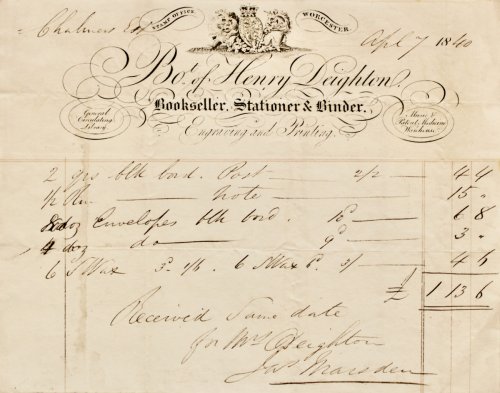 STAMP OFFICE WORCESTER
Chalmers Esq
Apl 7 1840
Bot. of Henry Deighton,
Bookseller, Stationer & Binder,
Engraving and Printing.
General Circulating Library
Music & Patent Medicine Warehouse
2 qrs blk bord. Post 2/2 4 4
1/2 Rm Note 15 "
8 doz Envelopes blk bord. 10d 6 8
4 doz do 9d 3 "
6 SWax 3d 1/6. 6 SWax 3/ 4 6
£ 1 13 6
Received Same date
for Mr Deighton
Jas Marsden